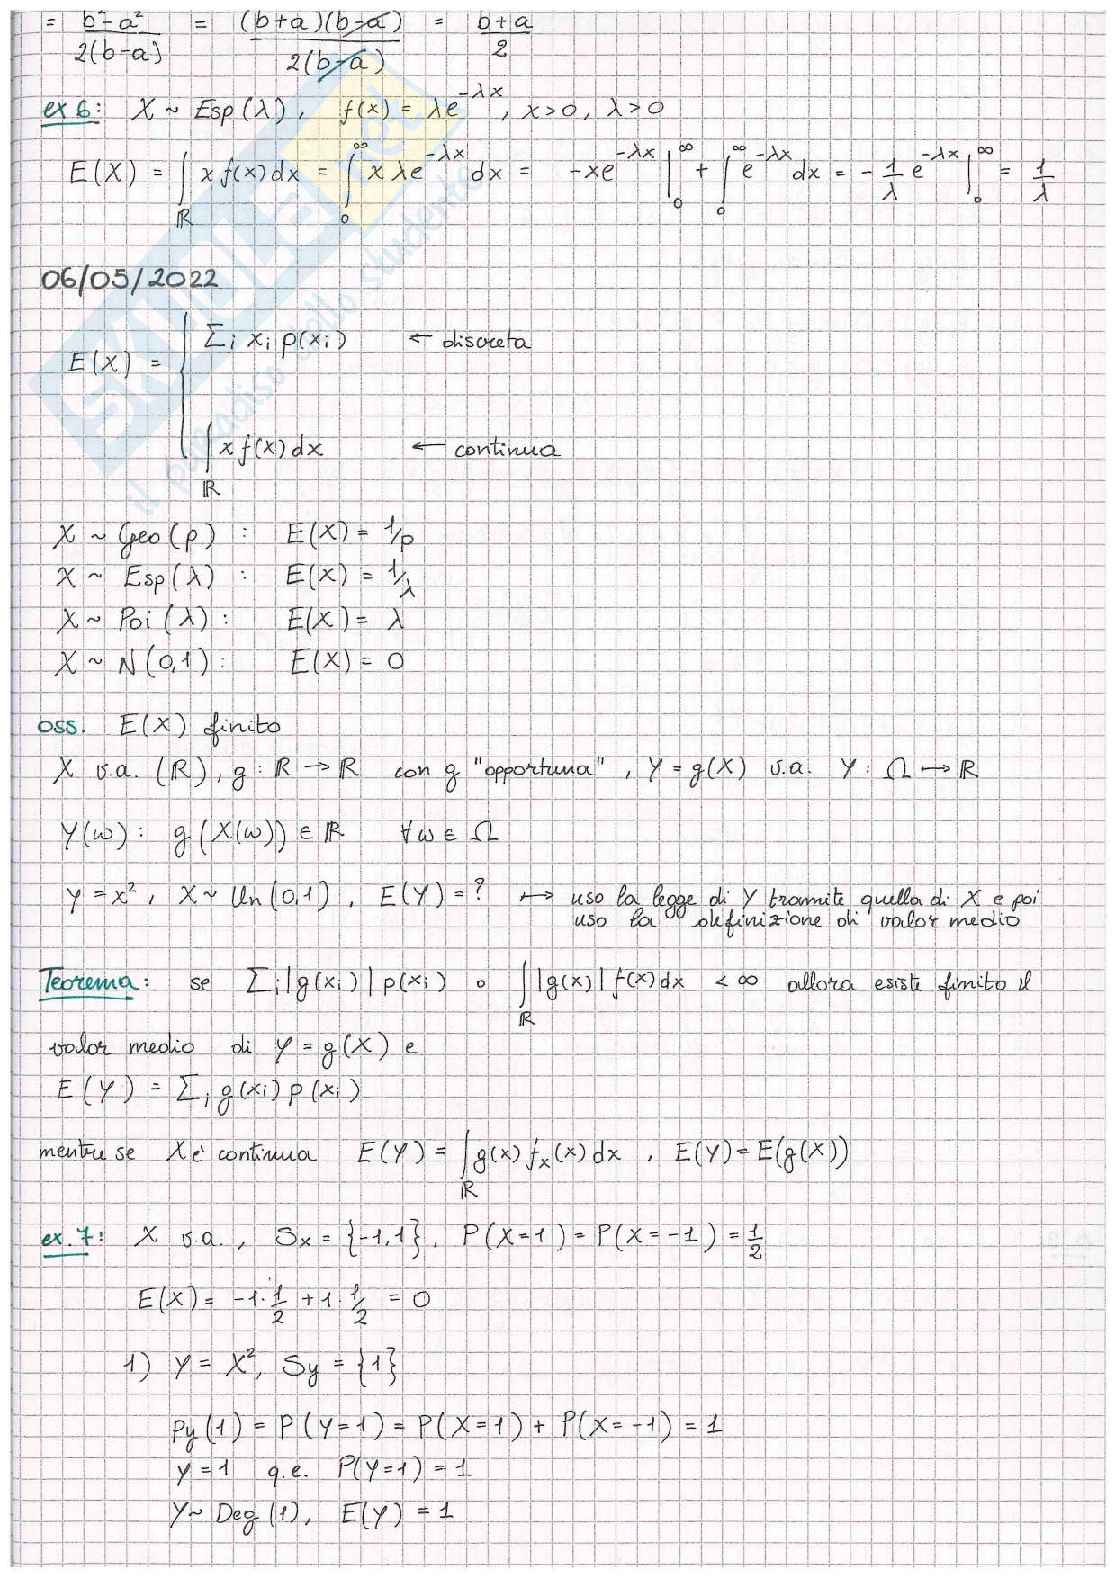 = b²-a² / 2(b-a) = (b+a)(b-a) / 2(b-a) = b+a / 2
ex 6: X ~ Esp(λ), f(x) = λe^{-λx}, x>0, λ>0
E(X) = ∫_ℝ x f(x)dx = ∫_0^∞ x λe^{-λx} dx = -xe^{-λx} |_0^∞ + ∫_0^∞ e^{-λx} dx = -1/λ e^{-λx} |_0^∞ = 1/λ
06/05/2022
E(X) = { Σ_i x_i p(x_i) ← discreta
∫_ℝ x f(x) dx ← continua
X ~ Geo(p) : E(X) = 1/p
X ~ Esp(λ) : E(X) = 1/λ
X ~ Poi(λ) : E(X) = λ
X ~ N(0,1) : E(X) = 0
oss. E(X) finito
X v.a. (ℝ), g : ℝ → ℝ con g "opportuna", Y = g(X) v.a. Y : Ω → ℝ
Y(ω) : g(X(ω)) ∈ ℝ ∀ω ∈ Ω
Y = x², X ~ Un(0,1), E(Y) = ? ↦ uso la legge di Y tramite quella di X e poi
uso la definizione di valor medio
Teorema: se Σ_i |g(x_i)| p(x_i) o ∫_ℝ |g(x)| f(x)dx < ∞ allora esiste finito il
valor medio di Y = g(X) e
E(Y) = Σ_i g(x_i) p(x_i)
mentre se X è continua E(Y) = ∫_ℝ g(x) f_x(x) dx, E(Y) = E(g(X))
ex. 7: X v.a., S_x = {-1,1}, P(X=1) = P(X=-1) = 1/2
E(X) = -1·1/2 + 1·1/2 = 0
1) Y = X², S_y = {1}
P_y(1) = P(Y=1) = P(X=1) + P(X=-1) = 1
Y=1 q.c. P(Y=1) = 1
Y ~ Deg(1), E(Y) = 1
SKUOLA.net
il paradiso dello studente